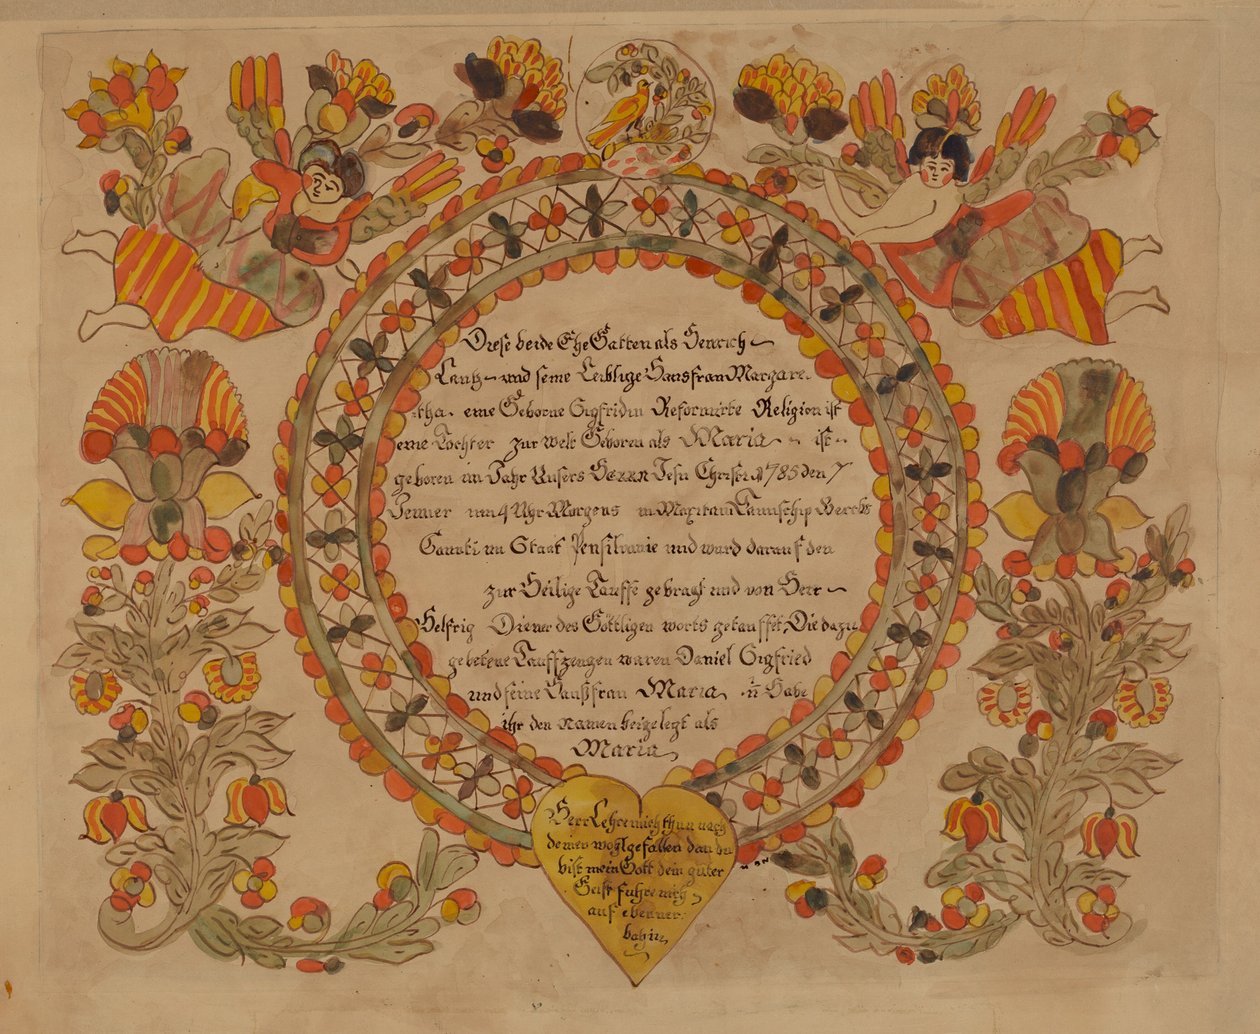 Diese beide Ehe Gatten als Henrich
Lantz und seine Leiblige Hausfrau Margare-
-tha eine Geborne Sigfridin Reformirte Religion ist
eine Tochter zur welt Geboren als Maria ist
geboren im Jahr Unsers HERRN Jesu Christi 1785 den 7
Jenner um 4 Uhr Morgens in Maxitani Taunschip Bercks
Caunti im Staat Pensilvanie und ward darauf den
zur Heilige Tauffe gebragt und von Herr
Helfrig Diener des Göttligen worts getauffet, Die dazu
gebetene Tauffzeugen waren Daniel Sigfried
und seine Haußfrau Maria u Habe
ihr den namen beigelegt als
Maria
Herr Lehre mich thun nach
deinen wohlgefallen dan du
bist mein Gott dein guter
Geist fuhre mich
auf ebenner
bahn